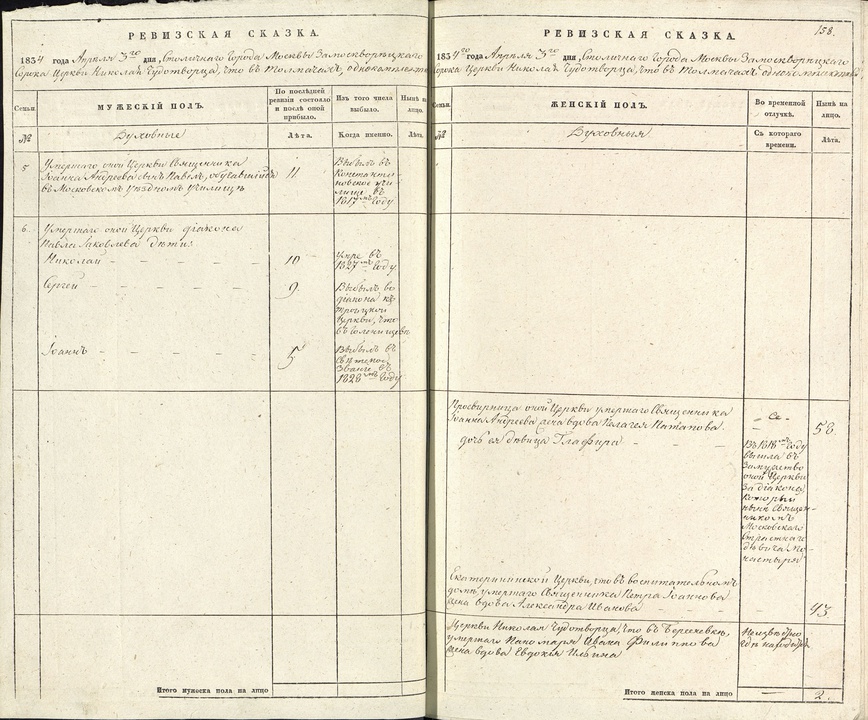 РЕВИЗСКАЯ СКАЗКА.
1834 года Апрѣля 3го дня, Столичнаго Города Москвы Замоскворѣцкаго
Сорока Церкви Николая Чудотворца, что въ Толмачахъ, о
Семьи.
МУЖЕСКІЙ ПОЛЪ.
По послѣдней
ревизіи состояло
и послѣ оной
прибыло.
Изъ того числа
выбыло.
Нынѣ на
лицо.
№
Духовные
Лѣта.
Когда именно.
Лѣта.
5
Умершаго оной Церкви Священника
Іоанна Андреева сынъ Павелъ, обучавшійся
въ Московскомъ уѣздномъ училищѣ
11.
Выбылъ въ
Константи
новское учи
лище въ
1817мъ Году
6.
Умершаго оной Церкви діакона
Павла Іаковлева дѣти:
Николай
10
Умре въ
1827мъ Году
Сергей
9.
Выбылъ во
діакона къ
Троицкой
Церкви, что
въ Голенищевѣ
Іоаннъ
5
Выбылъ въ
Свѣтское
Званіе въ
1828мъ Году
Итого мужеска пола на лицо
158.
РЕВИЗСКАЯ СКАЗКА.
1834го года Апрѣля 3го дня, Столичнаго Города Москвы Замоскворѣцкаго
Сорока Церкви Николая Чудотворца, что въ Толмачахъ, о
Семьи.
ЖЕНСКІЙ ПОЛЪ.
Во временной
отлучкѣ.
Нынѣ на
лицо.
№
Духовныя
Съ котораго
времени.
Лѣта.
Просвирница оной Церкви умершаго Священника
Іоанна Андреева жена вдова Пелагея Потапова.
58.
дочь ея дѣвица Глафира
Въ 1818мъ Году
вышла въ
Замужество
оной Церкви
За діакона
который
нынѣ Священ-
никомъ
Московскаго
Страстнаго
дѣвича Мо-
настыря
Екатерининской Церкви, что въ воспитательномъ
домѣ, умершаго Священника Петра Іоаннова
жена вдова Александра Иванова
43.
Церкви Николая Чудотворца, что въ Берсеневкѣ,
умершаго Пономаря Ивана Филиппова
жена вдова Евдокія Ильина
Неизвѣстно
гдѣ находится
Итого женска пола на лицо
2.